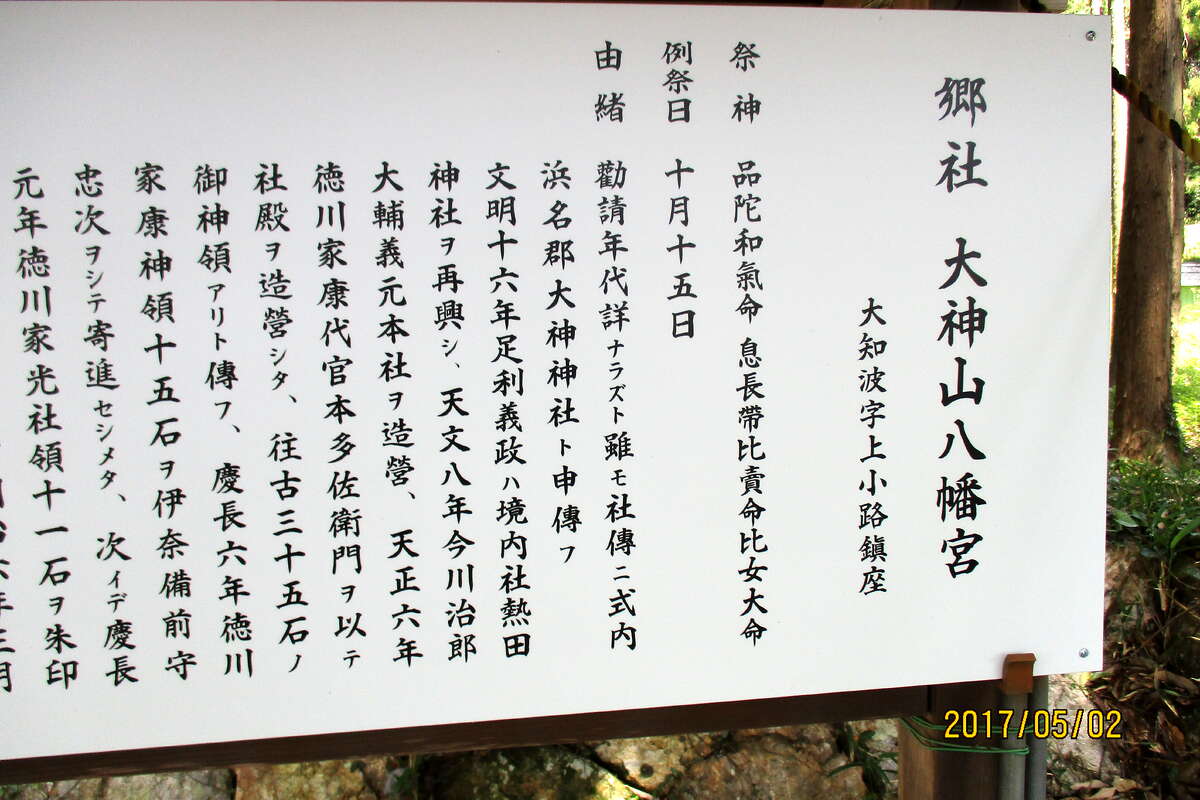 郷社 大神山八幡宮
大知波字上小路鎮座
祭神 品陀和氣命 息長帶比賣命比女大命
例祭日 十月十五日
由緒 勸請年代詳ナラズト雖モ社傳ニ式内
浜名郡大神神社ト申傳フ
文明十六年足利義政ハ境内社熱田
神社ヲ再興シ、天文八年今川治郎
大輔義元本社ヲ造營、天正六年
徳川家康代官本多佐衛門ヲ以テ
社殿ヲ造營シタ、往古三十五石ノ
御神領アリト傳フ、慶長六年徳川
家康神領十五石ヲ伊奈備前守
忠次ヲシテ寄進セシメタ、次イデ慶長
元年徳川家光社領十一石ヲ朱印
年三月
2017/05/02